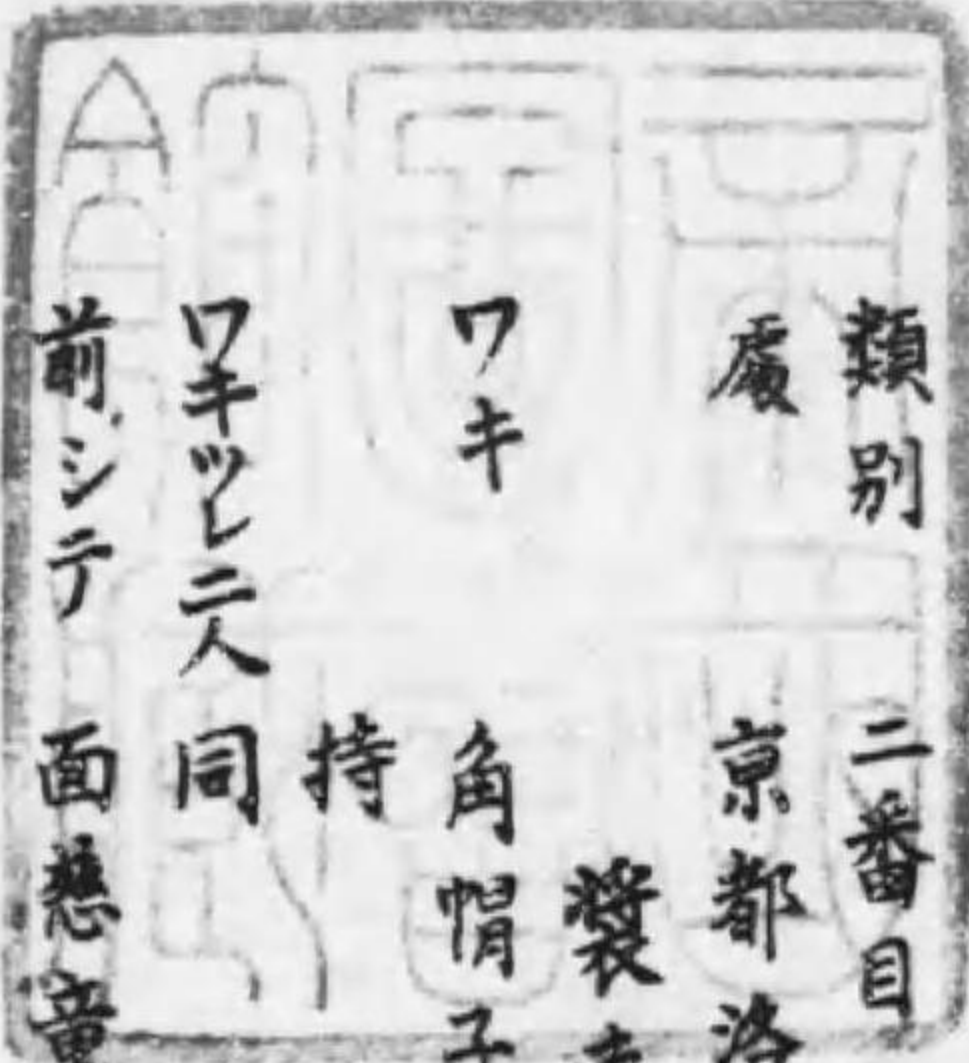 類別 二番目
處 京都洛
裝
ワキ 角帽子
持
ワキツレ二人 同
前シテ 面慈童